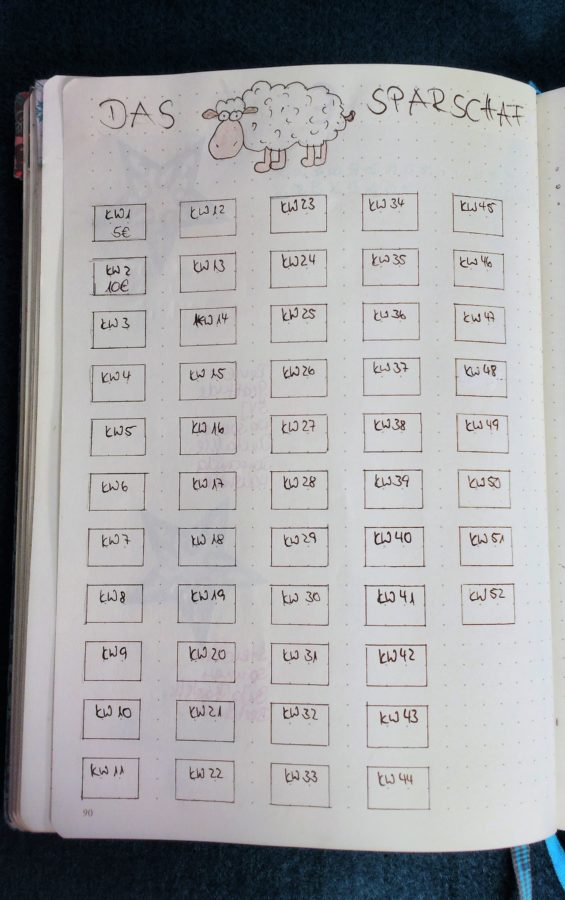 DAS SPARSCHAF
KW1
5€
KW2
10€
KW3
KW4
KW5
KW6
KW7
KW8
KW9
KW10
KW11
KW12
KW13
KW14
KW15
KW16
KW17
KW18
KW19
KW20
KW21
KW22
KW23
KW24
KW25
KW26
KW27
KW28
KW29
KW30
KW31
KW32
KW33
KW34
KW35
KW36
KW37
KW38
KW39
KW40
KW41
KW42
KW43
KW44
KW45
KW46
KW47
KW48
KW49
KW50
KW51
KW52
90